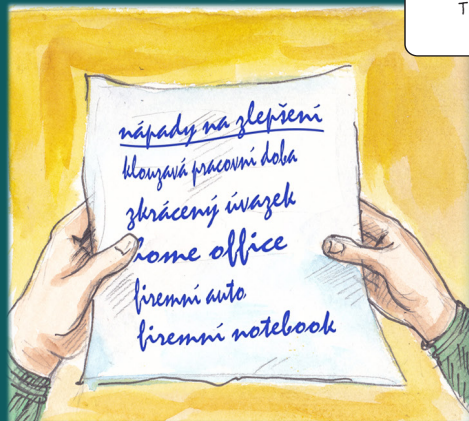 T
nápady na zlepšení
klouzavá pracovní doba
zkrácený úvazek
home office
firemní auto
firemní notebook